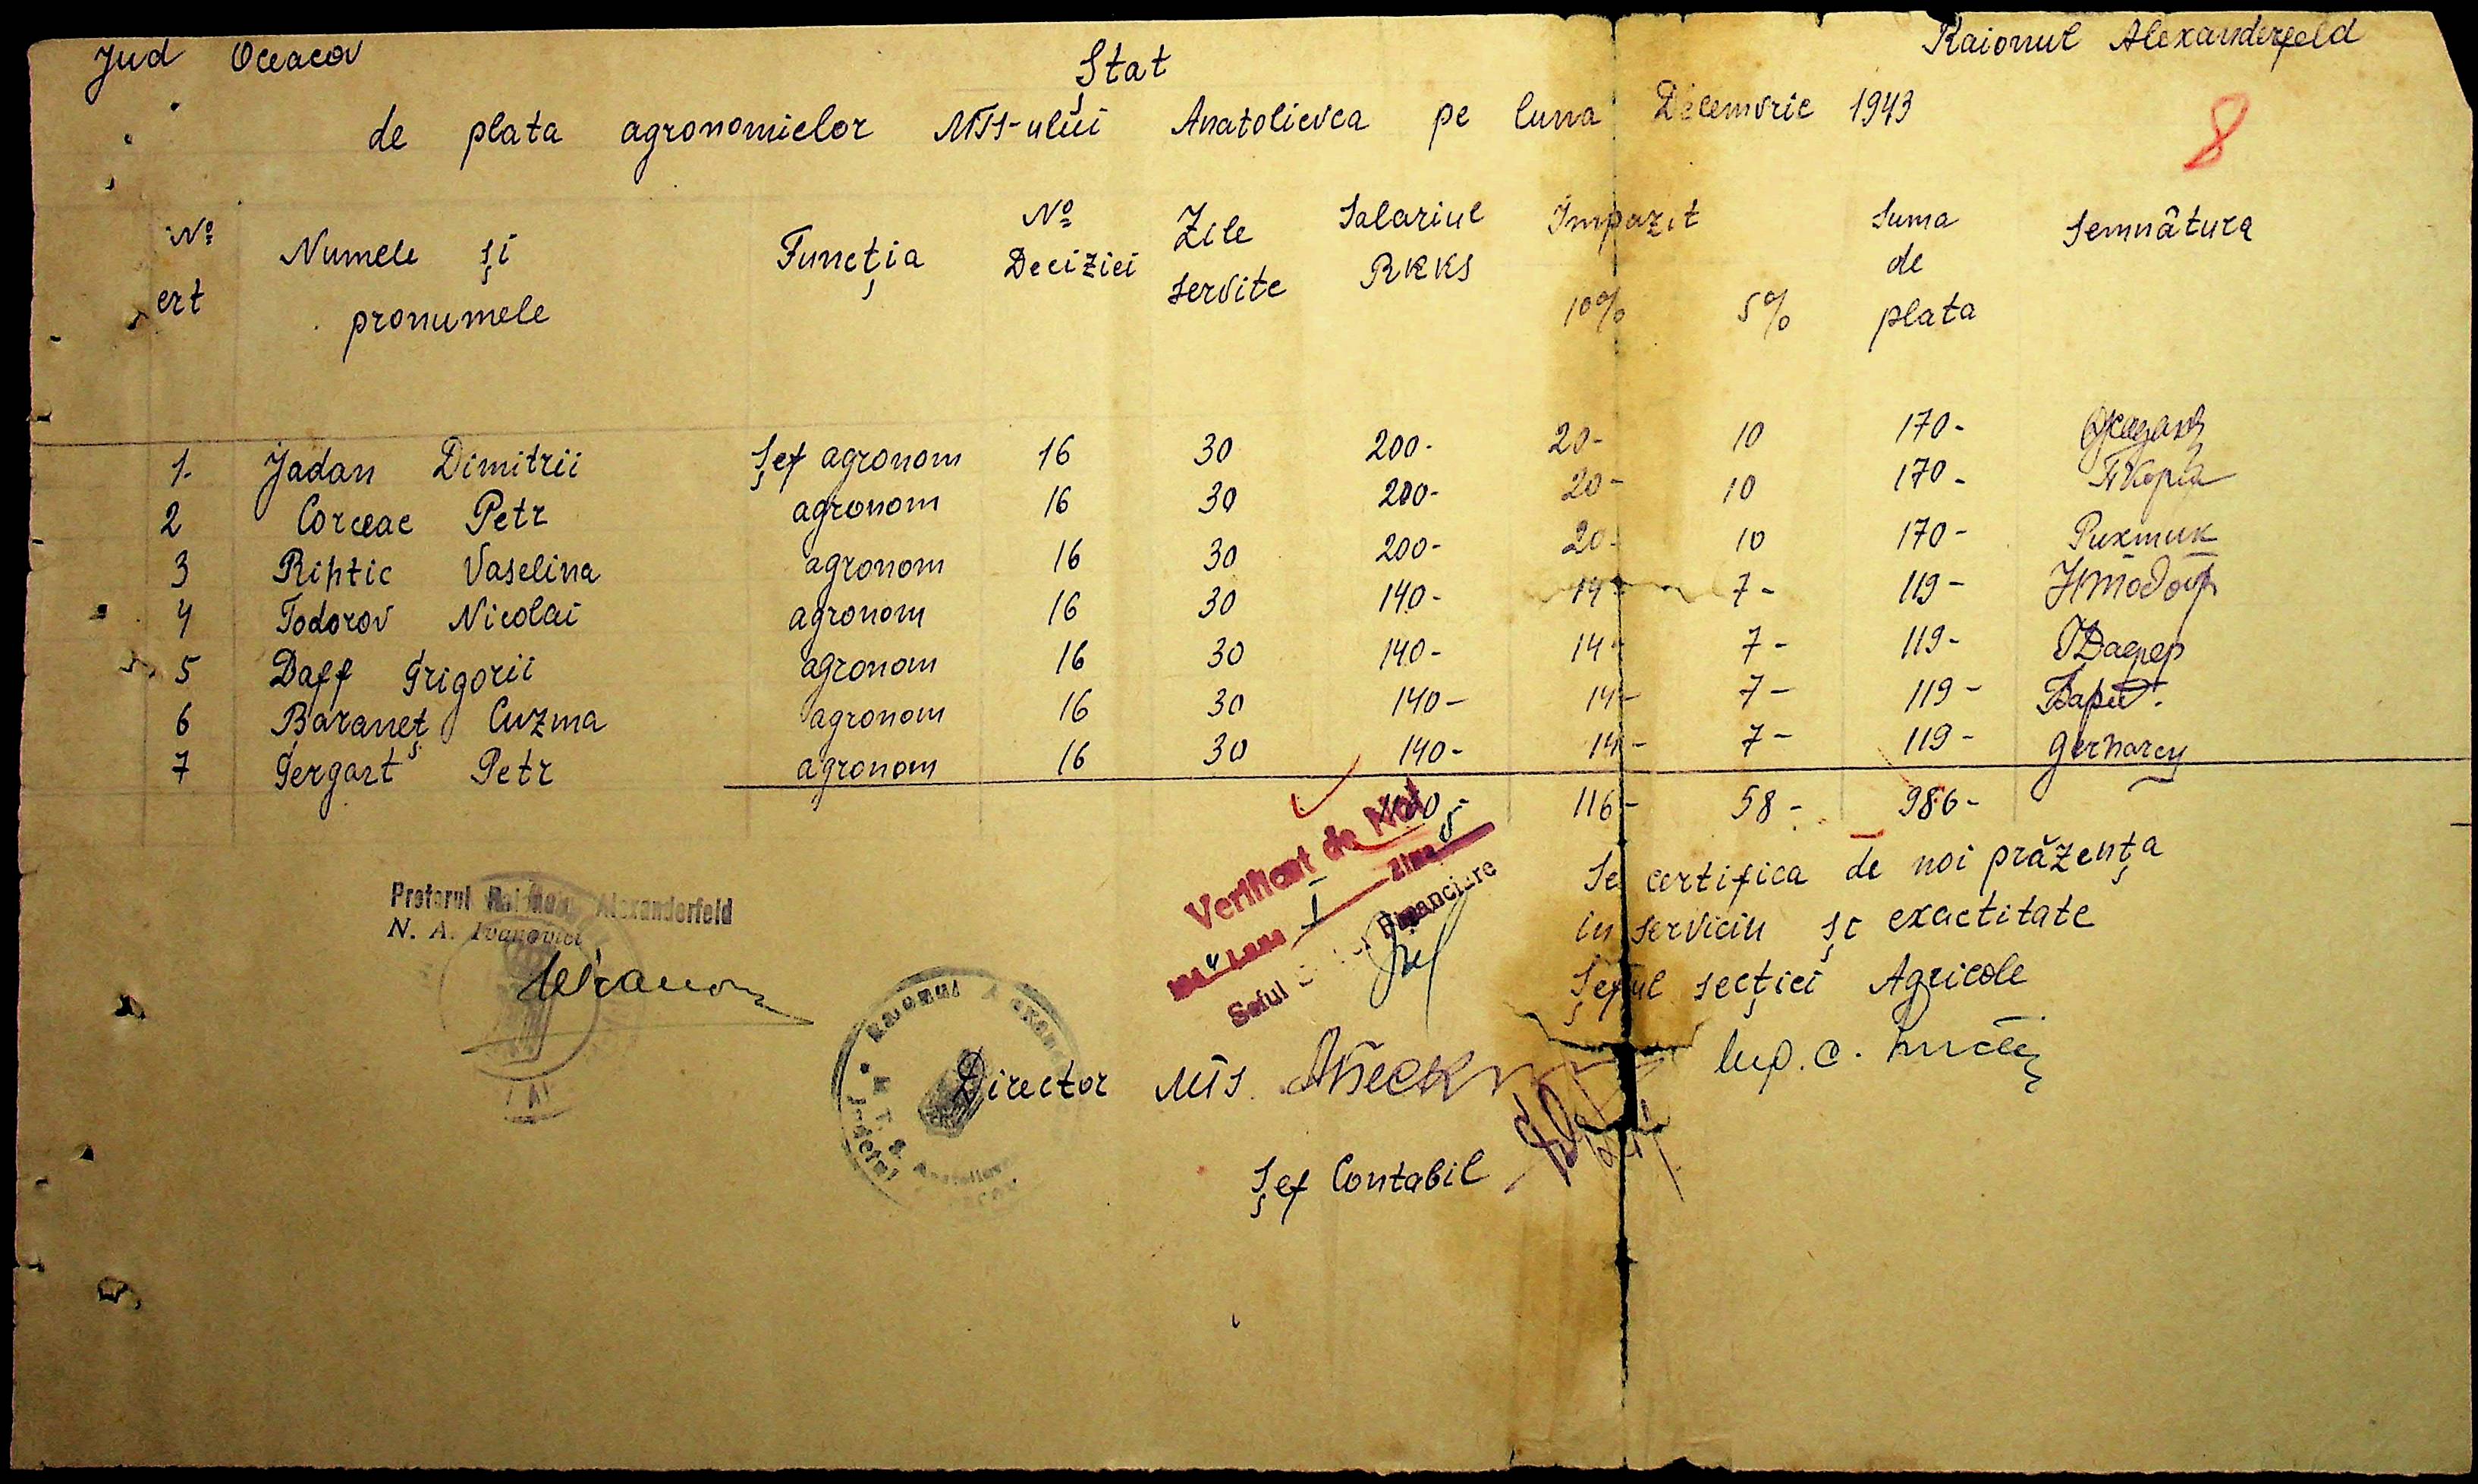 Jud Oceacov
Raionul Alexanderfeld
Ștat
de plata agronomielor MTS-ului Anatolievca pe luna Decemvrie 1943
8
№ ert
Numele și pronumele
Funcția
№ Deciziei
Zile servite
Salariul RKKS
Impozit 10% 5%
Suma de plata
Semnâtura
1. Jadan Dimitrii Șef agronom 16 30 200- 20- 10 170- Жадан
2 Corceac Petr agronom 16 30 200- 20- 10 170-
3 Rihtic Vaselina agronom 16 30 200- 20- 10 170- Рихтик
4 Todorov Nicolai agronom 16 30 140- 14- 7- 119-
5 Daff Grigorii agronom 16 30 140- 14- 7- 119-
6 Baraneț Cuzma agronom 16 30 140- 14- 7- 119-
7 Gergart Petr agronom 16 30 140- 14- 7- 119-
116- 58- 986-
Verificat de Noi
194 4 Luna I Ziua 5
Șeful Financiare
Pretorul Raionului Alexanderfeld
N. A. Ivanovici
Se certifica de noi prăzența
in serviciu și exactitate
Șeful secției Agricole
Raionul Alexan
M.T.S. Anatolievca
Județul
Director MTS.
Șef Contabil